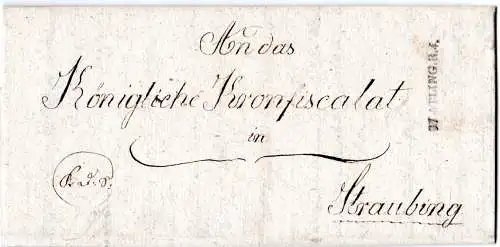 An das
Königliche Kronfiscalat
in
Straubing
R. 4.